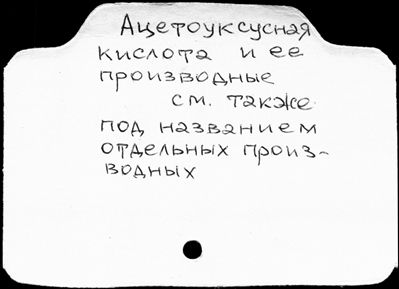 Ацетоуксусная
кислота и ее
производные
см. также
под названием
отдельных произ-
водных